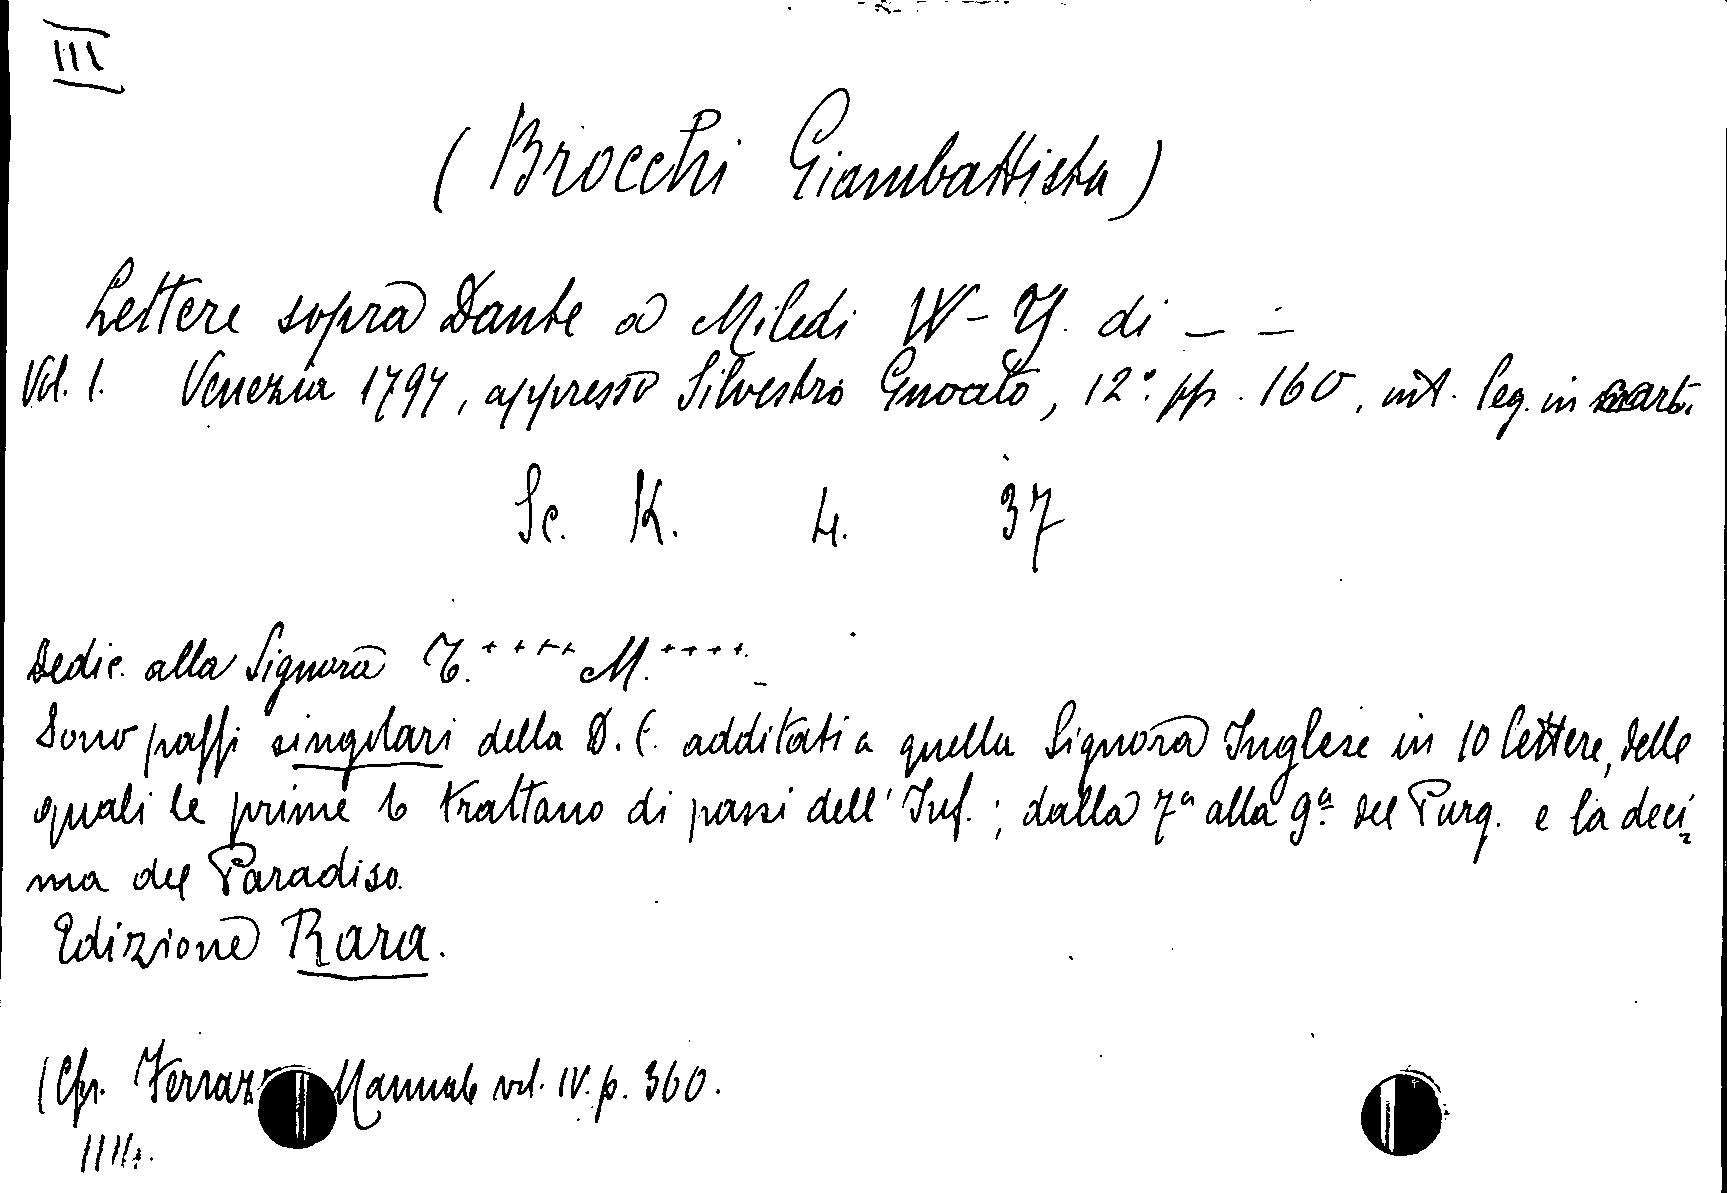 III
(Brocchi Giambattista)
Lettere sopra Dante a Miledi W-Y. di — —
Vol. 1. Venezia 1797, appresso Silvestro Gnoato, 12º. pp. 160, int. leg. in cart.
Sc. K. 4. 37
Dedic. alla Signora T.++++ M.++++.
Sono passi singolari della D. C. additati a quella Signora Inglese in 10 lettere, delle
quali le prime 6 trattano di passi dell'Inf.; dalla 7ª alla 9ª del Purg. e la deci-
ma del Paradiso.
Edizione Rara.
(Cfr. Manuale vol. IV. p. 360.